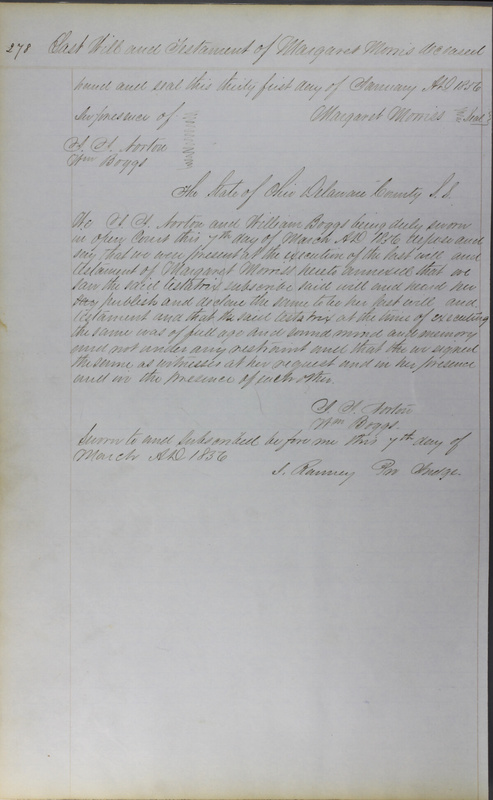 278 Last Will and Testament of Margaret Morris deceased
hand and seal this thirty first day of January AD 1856
In presence of Margaret Morris Seal
Wm Boggs
The State of Ohio Delaware County S.S.
We Norton and William Boggs being duly sworn
in open Court this 7th day of March AD 1856 depose and
say, that we were present at the execution of the last will and
testament of Margaret Morriss hereto annexed that we
saw the said testatrix subscribe said will and heard her
publish and declare the same to be her last will and
testament and that the said testatrix at the time of executing
the same was of full age and sound mind and memory
and not under any restraint and that the we signed
the same as witnesses at her request and in her presence
and in the presence of each other.
Norton
Wm Boggs.
Sworn to and subscribed before me this 7th day of
March AD 1856
Ranney Pro Judge